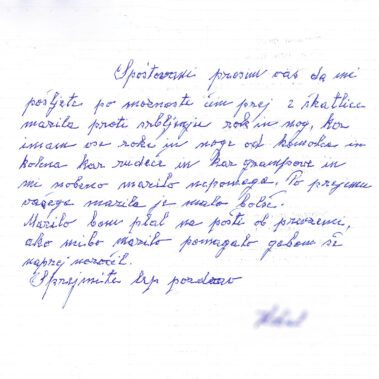 Spoštovani prosim vas da mi
pošljete po možnosti čim prej 2 škatlici
mazila proti srbljenju rok in nog, ker
imam vse roke in noge od komolca in
kolena kar rdeče in kar grampove in
mi nobeno mazilo nepomaga. Po prejemu
vašega mazila je malo bolše.
Mazilo bom plal na pošti ob prevzemi,
ako mi bo mazilo pomagalo ga bom še
naprej naročil.
Sprejmite lep pozdrav